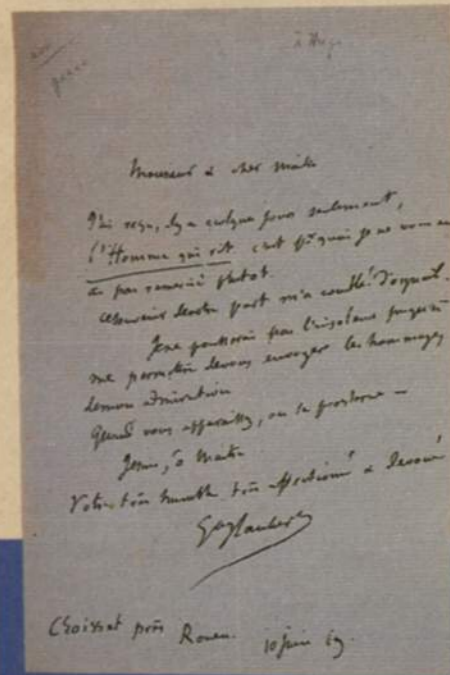 à Hugo
Monsieur & cher maître
J'ai reçu, il y a quelques jours seulement,
l'Homme qui rit c'est pourquoi je ne vous en
ai pas remercié plutot.
ce souvenir de votre part m'a comblé d'orgueil.
Je ne pousserai pas l'insolence jusqu'à
me permettre de vous envoyer les hommages
de mon admiration
Quand vous apparaissez, on se prosterne —
Je suis, ô Maître
Votre très humble très affectionné & dévoué
G Flaubert
Croisset près Rouen. 10 juin 69.